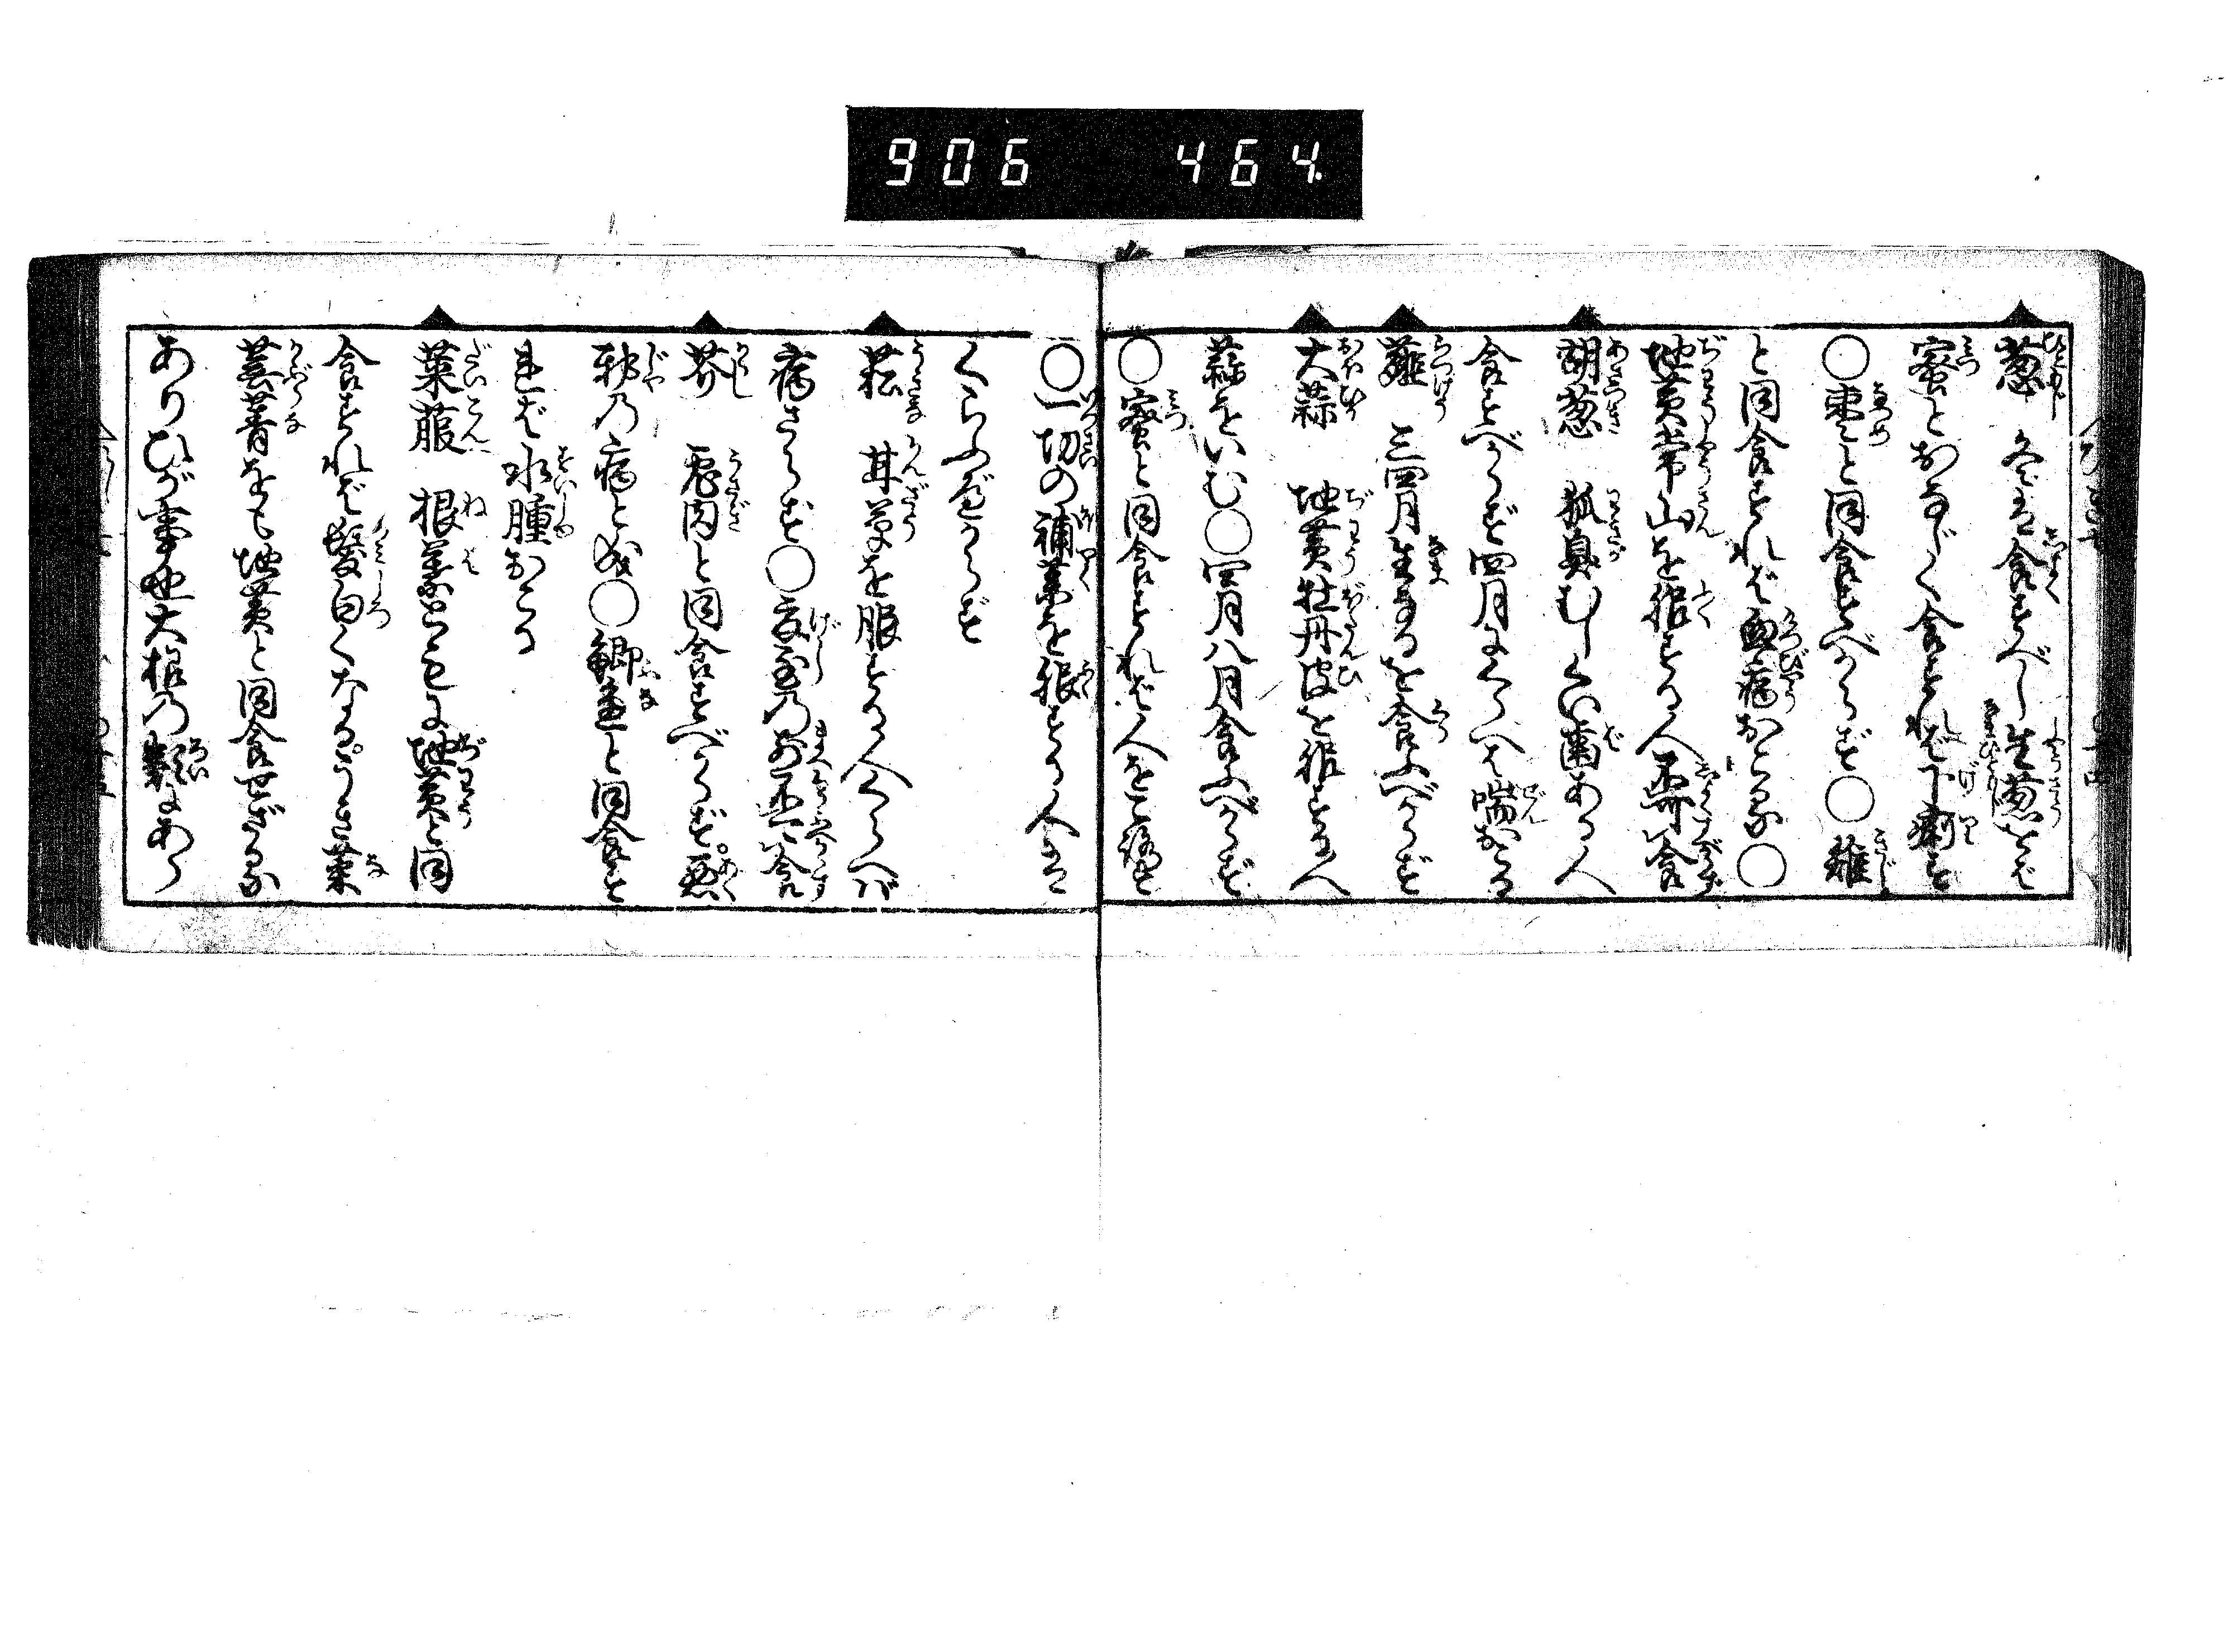 906 464.
葱 冬は食すべし生葱をば
蜜とおなじく食すれば下痢す
〇棗と同食すべからず〇雉
と同食すれば血病おこる〇
地黄常山を服する人不可食
胡葱 狐臭むしくい歯ある人
食すべからず四月にくらへば喘おこる
薤 三四月生なるを食ふべからず
大蒜 地黄牡丹皮を服する人
蒜をいむ〇四月八月食ふべからず
〇蜜と同食すれば人をころす
〇一切の補薬を服する人は
くらふべからず
菘 甘草を服する人くらへば
病さらず〇夏至の前不可食
芥 兎肉と同食すべからず。悪
邪の病と成〇鯽魚と同食す
れば水腫おこる
莱菔 根葉ともに地黄と同
食すれば髪白くなる。うき菜
蕪菁をも地黄と同食せざる
ありひが事也大根の類にあら